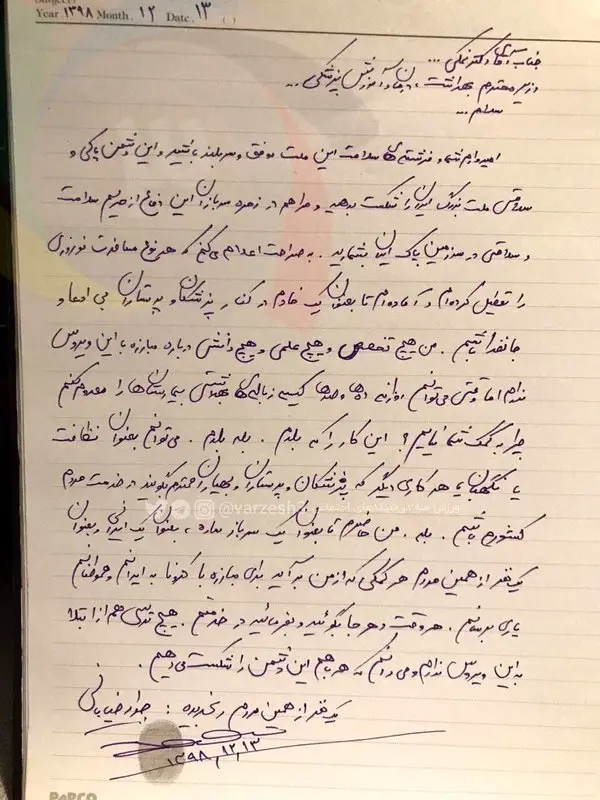 Subject:
Year ۱۳۹۸ Month. ۱۲ Date. ۱۳ ( )
جناب آقای دکتر نمکی ...
وزیر محترم بهداشت، درمان و آموزش پزشکی ...
سلام ...
امیدوارم شما و فرشته‌های سلامت این ملت موفق و سربلند باشید و این دشمن پاکی و
سلامتی ملت بزرگ ایران را شکست بدهید و مرا هم در زمره سربازان این دفاع از حریم سلامت
و سلامتی در سرزمین پاک ایران بشمارید. به صراحت اعلام می‌کنم که هر نوع مسافرت نوروزی
را تعطیل کرده‌ام و آماده‌ام تا بعنوان یک خادم در کنار پزشکان و پرستاران بی ادعا و
جانفدا باشم. من هیچ تخصص و هیچ علمی و هیچ دانشی درباره مبارزه با این ویروس
ندارم اما وقتی می‌توانم روزانه ده‌ها و صدها کیسه زباله‌های بهداشتی بیمارستان‌ها را معدوم کنم
چرا به کمک شما نیایم؟ این کار را که بلدم. بله بلدم. می‌توانم بعنوان نظافت
یا نگهبان یا هر کاری دیگر که پزشکان و پرستاران و بهیاران محترم بگویند در خدمت مردم
کشورم باشم. بله. من حاضرم تا بعنوان یک سرباز ساده، بعنوان یک ایرانی و بعنوان
یک نفر از همین مردم هر کمکی که از من برآید برای مبارزه با کرونا به ایرانم و هموطنانم
یاری برسانم. هر وقت و هر جا بگوئید و بفرمائید در خدمتم. هیچ ترسی هم از ابتلا
به این ویروس ندارم و می‌دانم که همه با هم این دشمن را شکست می‌دهیم.
یک نفر از همین مردم رنجدیده: جواد خیابانی
۱۳۹۸,۱۲,۱۳
@varzesh3
PAPCO